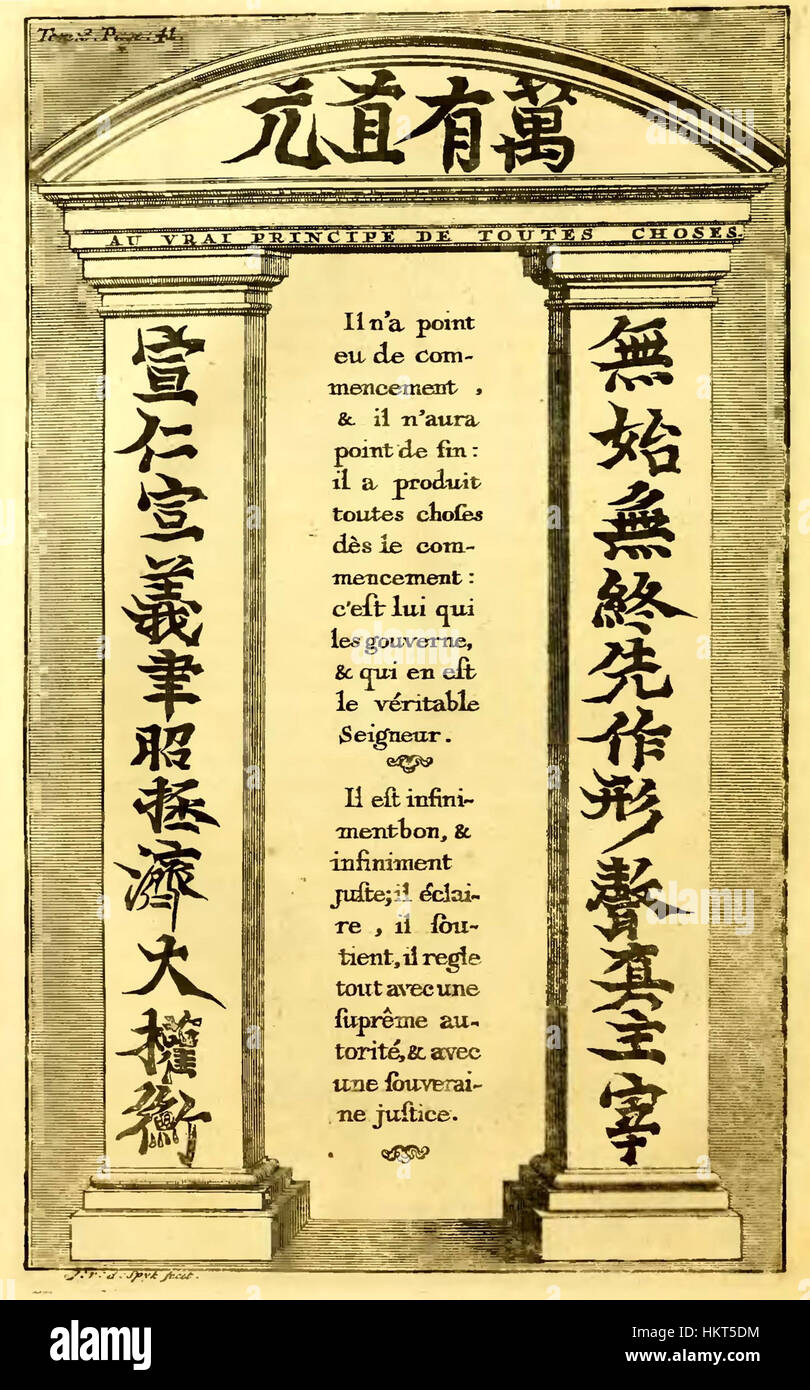 Tom. 3. Page. 41.
萬有真元
AU VRAI PRINCIPE DE TOUTES CHOSES.
無始無終先作形聲真主宰
宣仁宣義聿昭拯濟大權衡
Il n'a point
eu de com-
mencement,
& il n'aura
point de fin:
il a produit
toutes choſes
dès le com-
mencement:
c'eſt lui qui
les gouverne,
& qui en eſt
le véritable
Seigneur.
Il eſt infini-
ment bon, &
infiniment
juſte; il éclai-
re, il ſou-
tient, il regle
tout avec une
ſuprême au-
torité, & avec
une ſouverai-
ne juſtice.
J. v. d. Spyk fecit.
alamy
alamy stock photo
HKT5DM
www.alamy.com